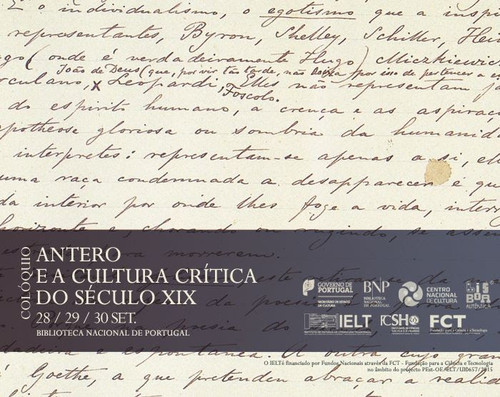 E o individualismo, o egotismo que a inspi
representantes, Byron, Shelley, Schiller, Hei
go (onde é verdadeiramente Hugo) Miczkiewic
João de Deus (que, por vir tão tarde, não deixa por isso de pertencer a
culano, x Leopardi, Foscolo. Elles não representam
do espirito humano, a crença e as aspiraç
apotheose gloriosa ou sombria da humanida
interpretes: representam-se apenas a si, e
uma raça condemnada a desapparecer é que
da interior por onde lhes foge a vida, inter
horizonte e, chorando ou rugindo, se assen
morrerem.
COLÓQUIO
ANTERO
E A CULTURA CRÍTICA
DO SÉCULO XIX
28 / 29 / 30 SET.
BIBLIOTECA NACIONAL DE PORTUGAL
GOVERNO DE
PORTUGAL
BNP
BIBLIOTECA
NACIONAL
DE PORTUGAL
CENTRO
NACIONAL
DE CULTURA
LISBOA
IELT
FCSH
FCT
espontanea. O outro
Goethe, a que pretenden abraçar a realid
O IELT é financiado por Fundos Nacionais através da FCT - Fundação para a Ciência e a Tecnologia
no âmbito do projecto PEst-OE/ELT/UI0657/2015